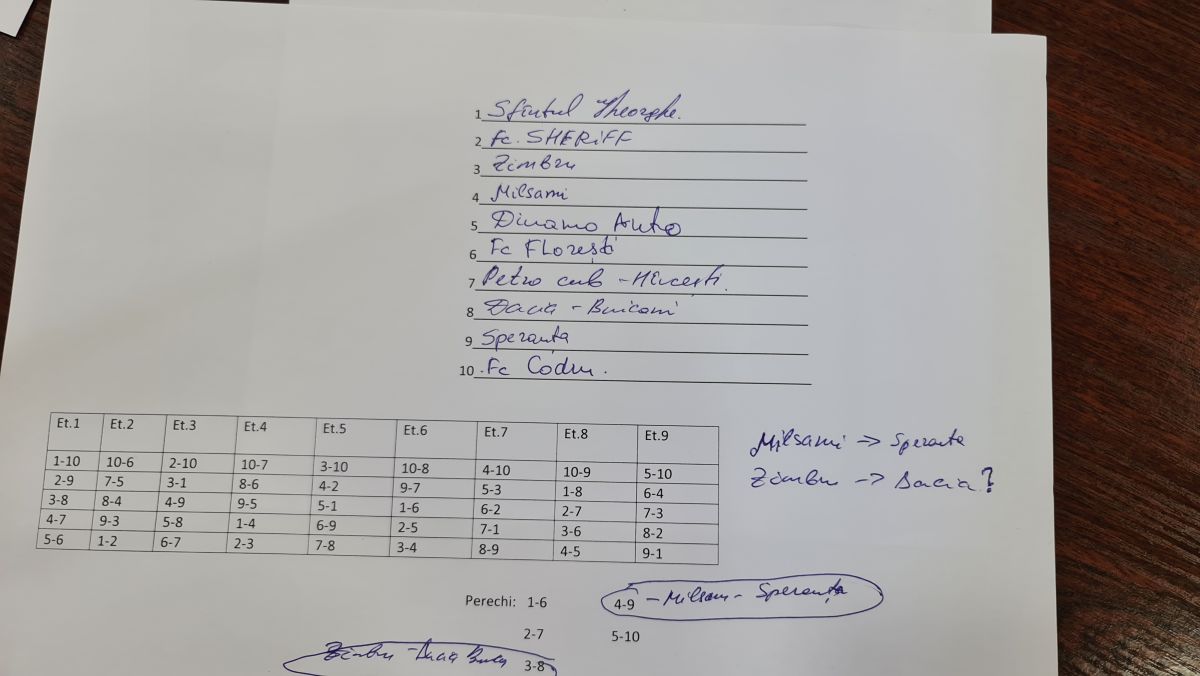 1 Sfintul Gheorghe.
2 Fc. SHERiFF
3 Zimbru
4 Milsami
5 Dinamo Auto
6 Fc FLorești
7 Petro cub - Hîncești.
8 Dacia - Buiucani
9 Speranta
10 Fc Codru.
Et.1 Et.2 Et.3 Et.4 Et.5 Et.6 Et.7 Et.8 Et.9
1-10 10-6 2-10 10-7 3-10 10-8 4-10 10-9 5-10
2-9 7-5 3-1 8-6 4-2 9-7 5-3 1-8 6-4
3-8 8-4 4-9 9-5 5-1 1-6 6-2 2-7 7-3
4-7 9-3 5-8 1-4 6-9 2-5 7-1 3-6 8-2
5-6 1-2 6-7 2-3 7-8 3-4 8-9 4-5 9-1
Milsami -> Speranta
Zimbru -> Dacia?
Perechi: 1-6 4-9 - Milsami - Speranța
2-7 5-10
Zimbru - Dacia 3-8